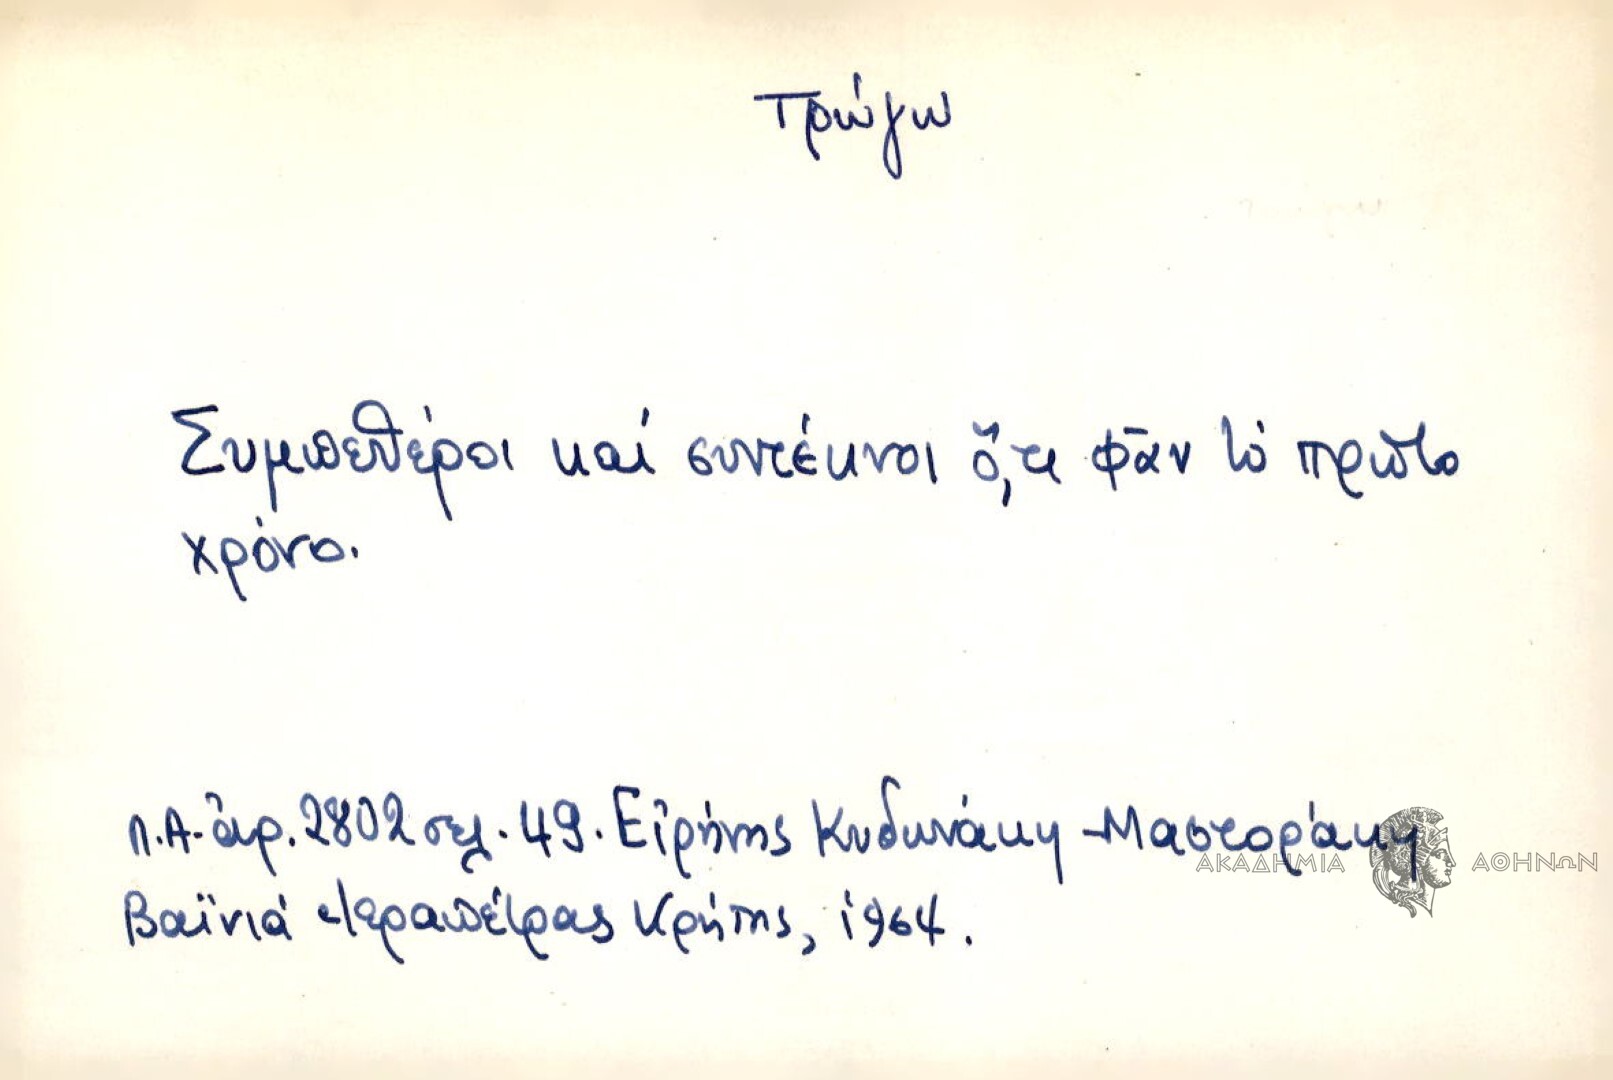 Τρώγω
Συμπεθέροι καί συντέκνοι ὅ,τι φᾶν τό πρῶτο
χρόνο.
Λ.Α. ἀρ. 2802 σελ. 49. Εἰρήνης Κυδωνάκη - Μαστοράκη
Βαϊνιά Ἱεραπέτρας Κρήτης, 1964.
ΑΚΑΔΗΜΙΑ ΑΘΗΝΩΝ